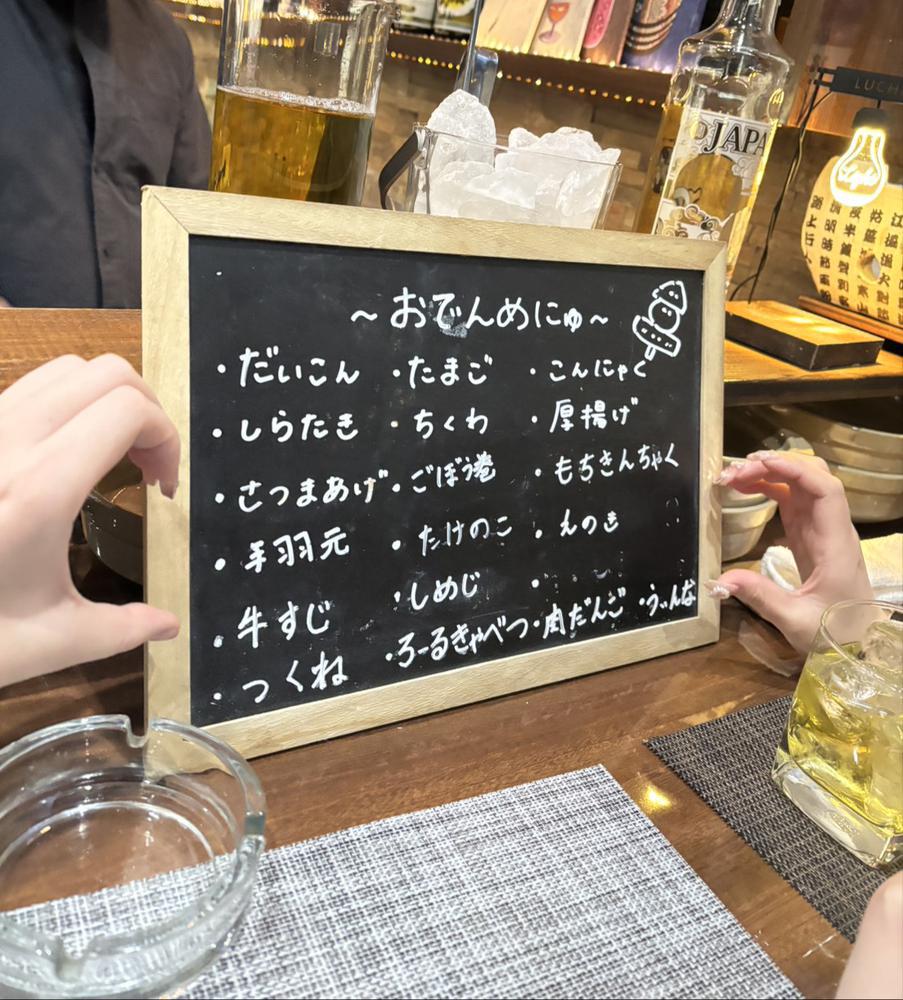 ～おでんめにゅ～
・だいこん ・たまご ・こんにゃく
・しらたき ・ちくわ ・厚揚げ
・さつまあげ ・ごぼう巻 ・もちきんちゃく
・手羽元 ・たけのこ ・えのき
・牛すじ ・しめじ ・
・つくね ・ろーるきゃべつ ・肉だんご ・うぃんな
JAPA
LUCH
Light